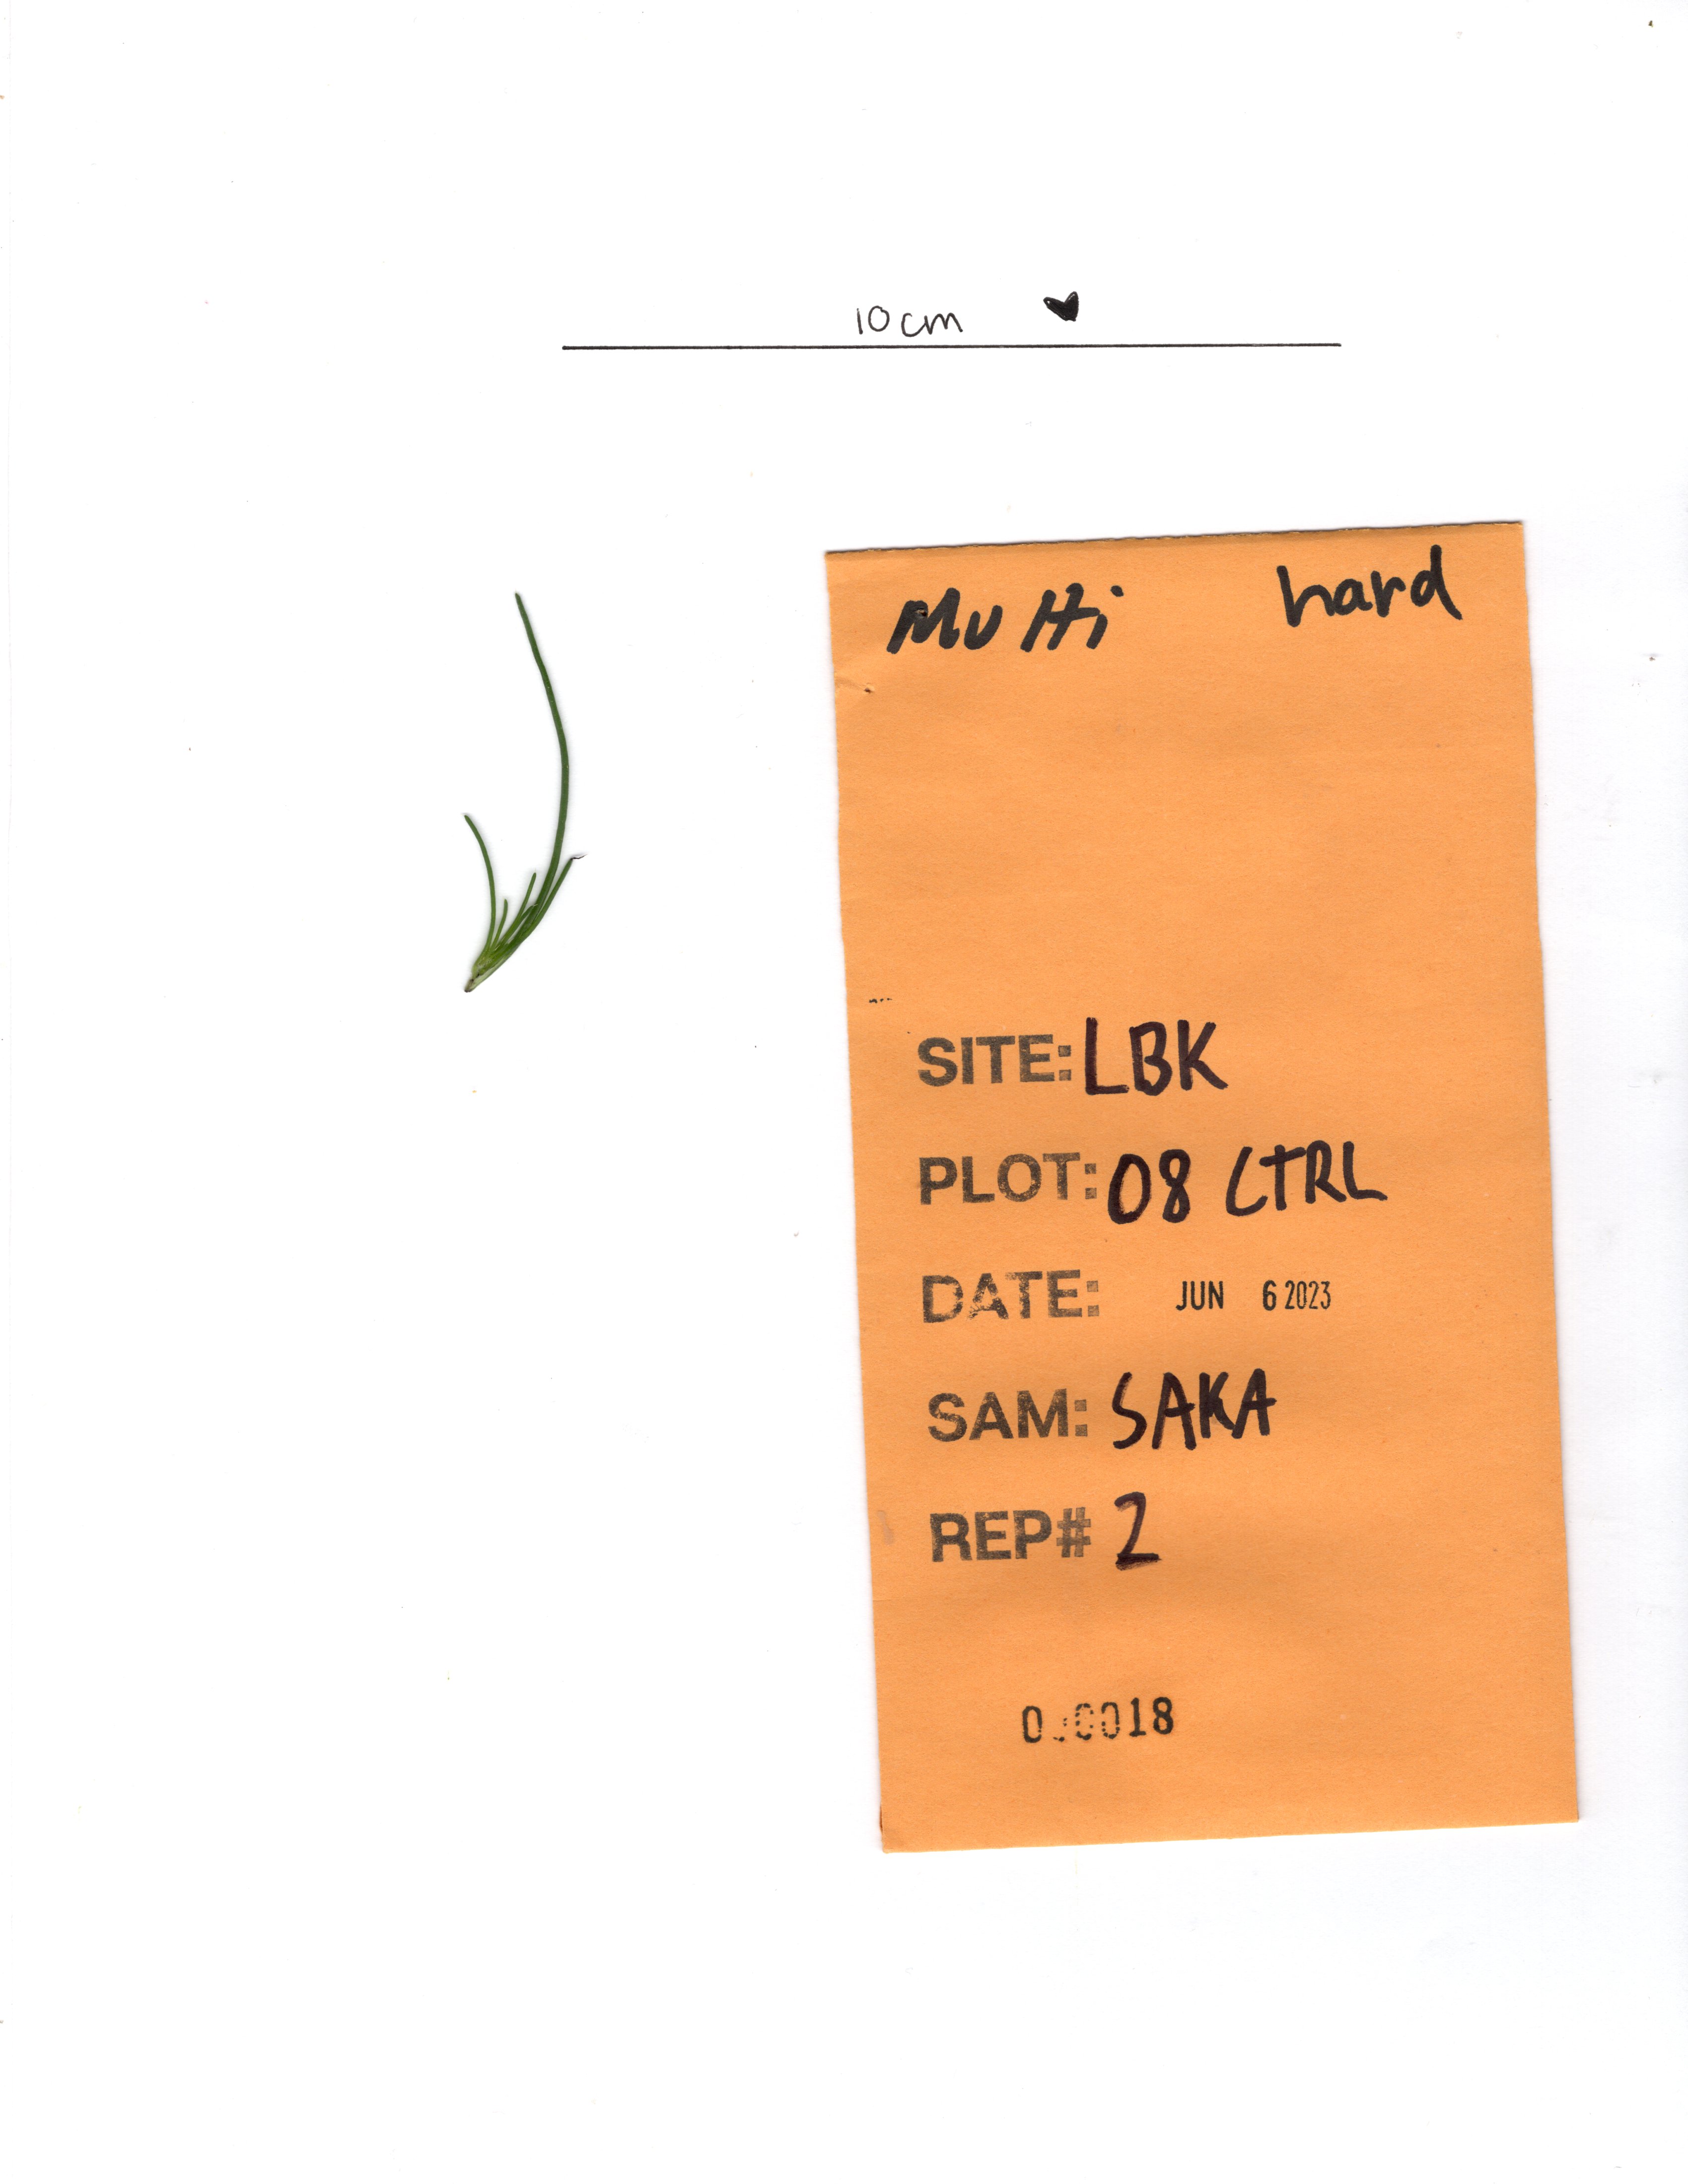 10cm
Multi hard
SITE: LBK
PLOT: 08 CTRL
DATE: JUN 6 2023
SAM: SAKA
REP# 2